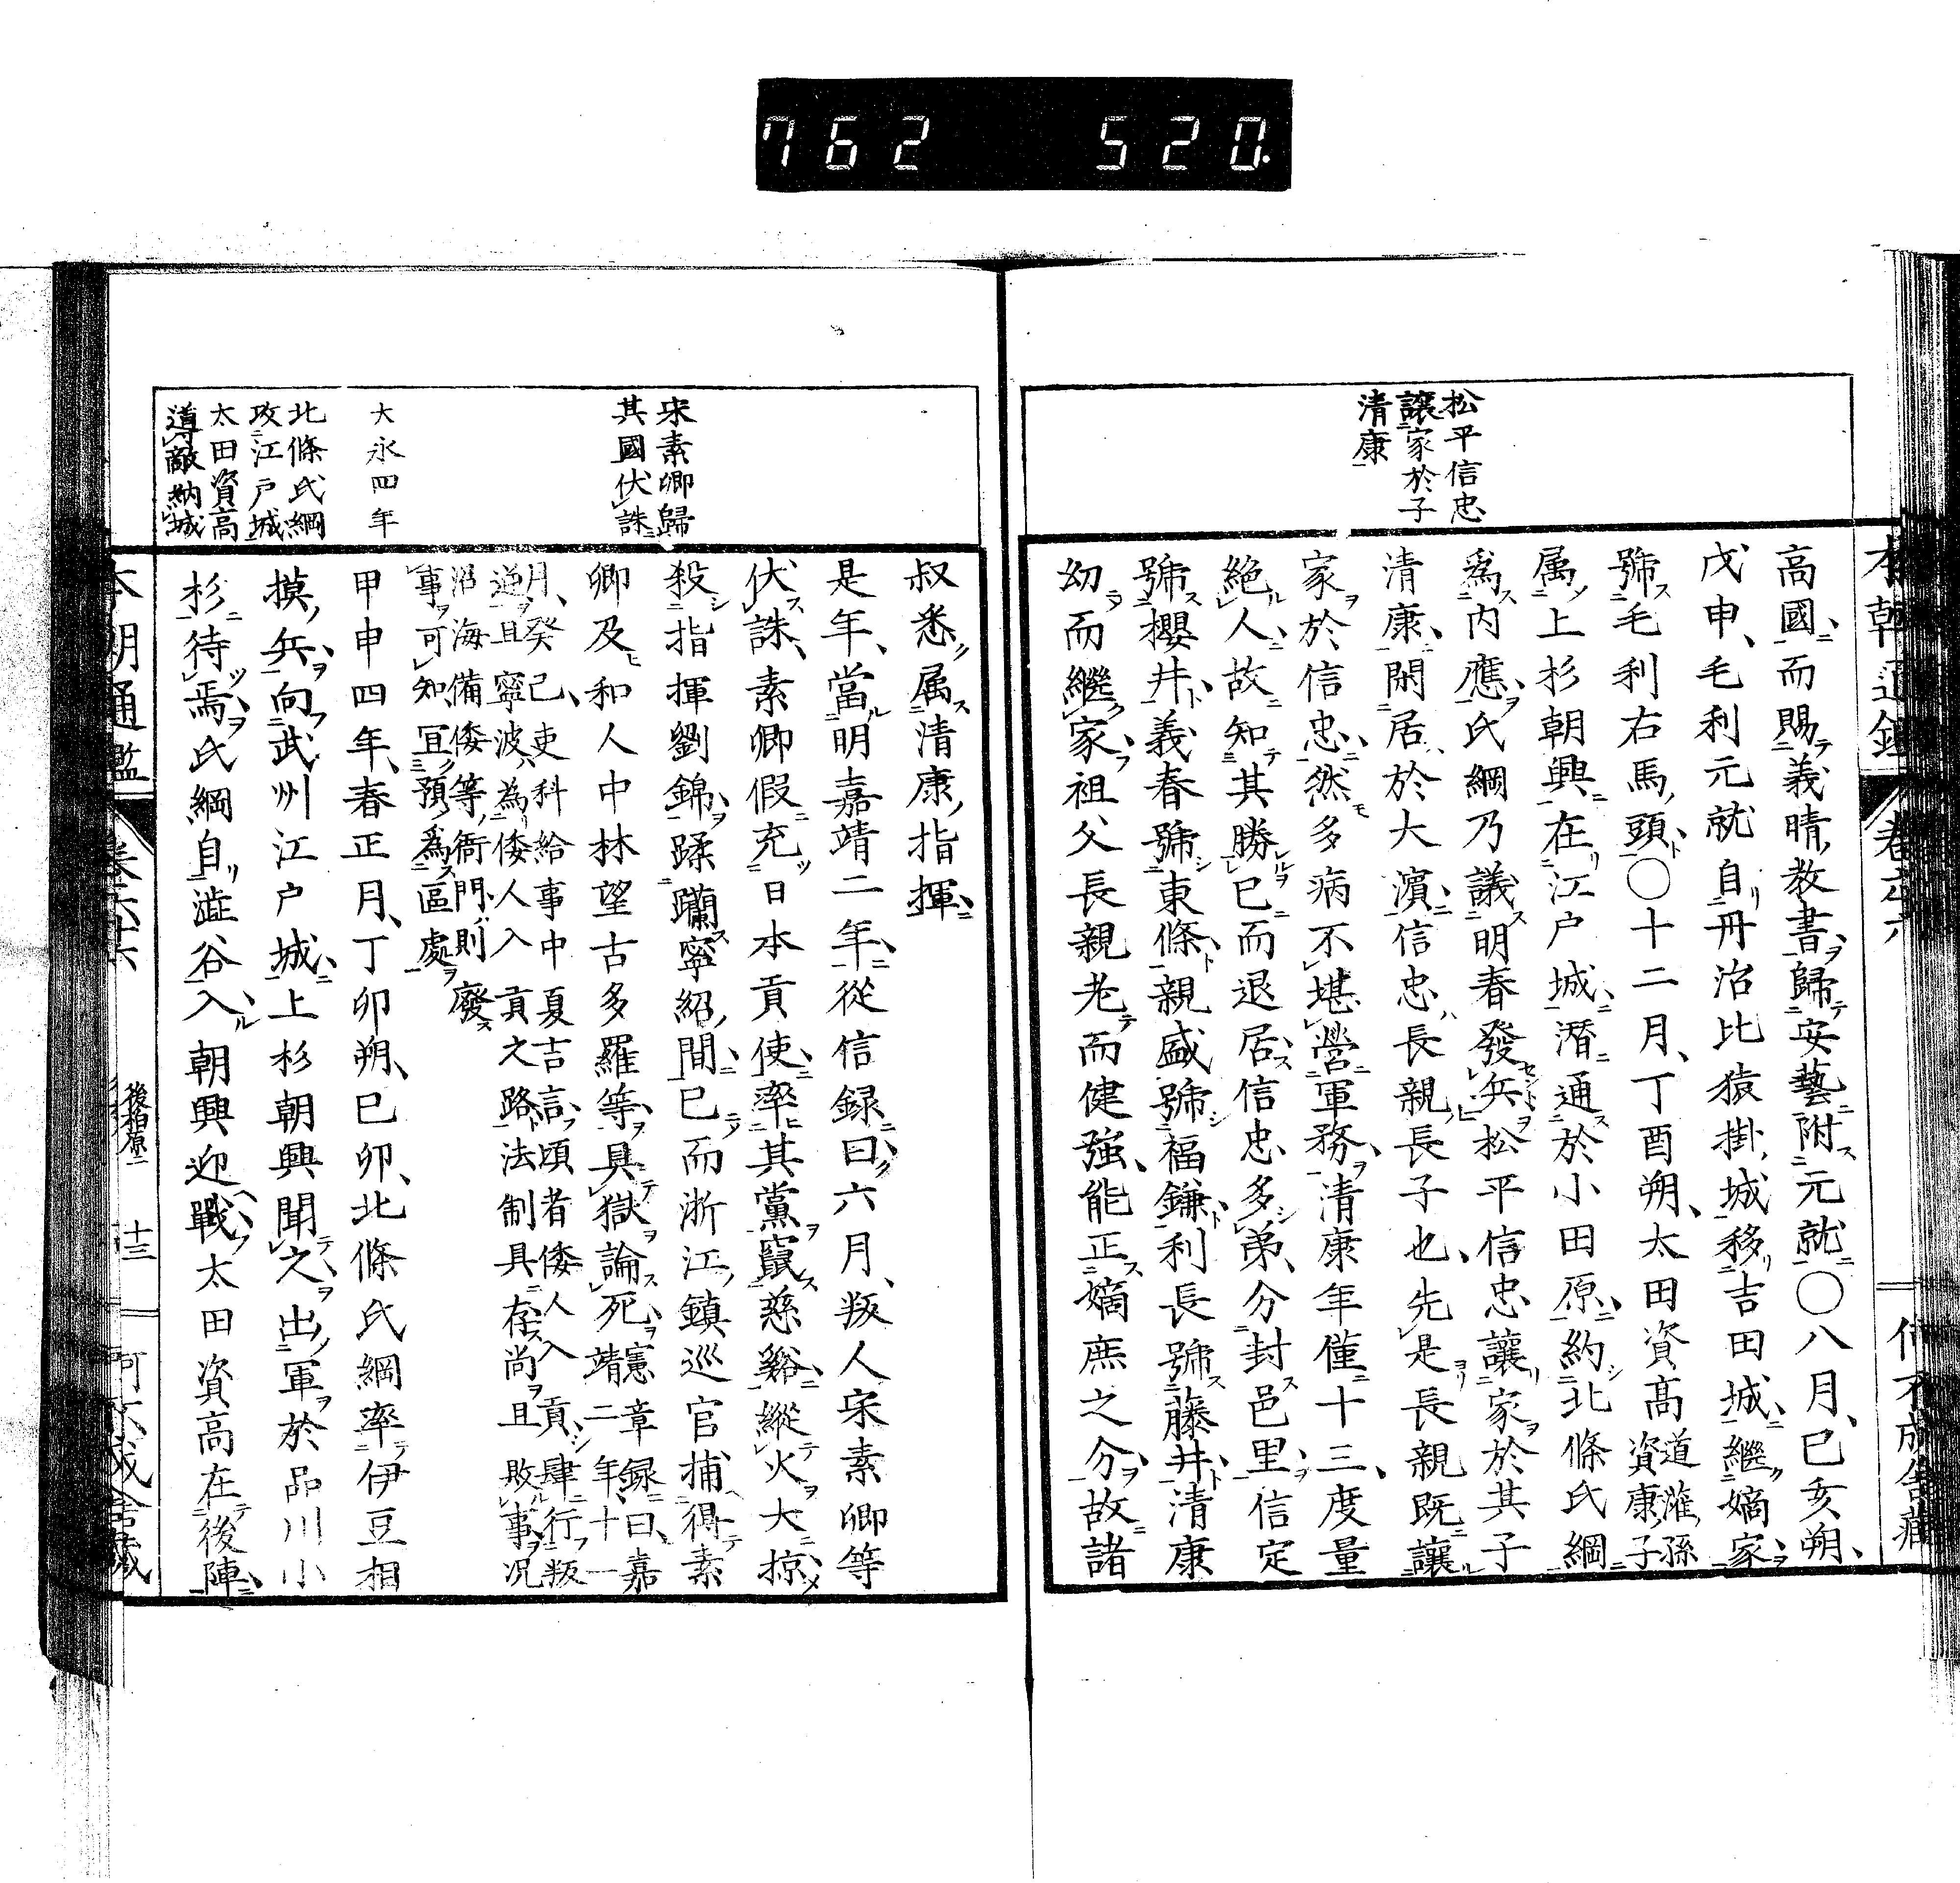 762 520.
松平信忠
讓家於子
清康
高國而賜義晴教書歸安藝附元就〇八月己亥朔
戊申毛利元就自丹治比猿掛城移吉田城繼嫡家
號毛利右馬頭〇十二月丁酉朔太田資高道灌孫資康子
属上杉朝興在江戸城潛通於小田原約北條氏綱
爲内應氏綱乃議明春發兵松平信忠讓家於其子
清康閑居於大濱信忠長親長子也先是長親既讓
家於信忠然多病不堪營軍務清康年僅十三度量
絶人故知其勝己而退居信忠多弟分封邑里信定
號櫻井義春號東條親盛號福鎌利長號藤井清康
幼而繼家祖父長親老而健強能正嫡庶之分故諸
宋素卿歸
其國伏誅
大永四年
北條氏綱
攻江戸城
太田資高
導敵納城
叔悉属清康指揮
是年當明嘉靖二年從信録曰六月叛人宋素卿等
伏誅素卿假充日本貢使率其黨竄慈谿縱火大掠
殺指揮劉錦蹂躪寧紹間已而浙江鎮巡官捕得素
卿及和人中林望古多羅等具獄論死憲章録曰嘉靖二年十一
月癸已吏科給事中夏吉言頃者倭人入貢肆行叛
逆且寧波為倭人入貢之路法制具存尚且敗事况
沿海備倭等衙門則廢
事可知冝預爲區處
甲申四年春正月丁卯朔己卯北條氏綱率伊豆相
摸兵向武州江戸城上杉朝興聞之出軍於品川小
杉待焉氏綱自澁谷入朝興迎戰太田資高在後陣
本朝通鑑
後柏原二
十三